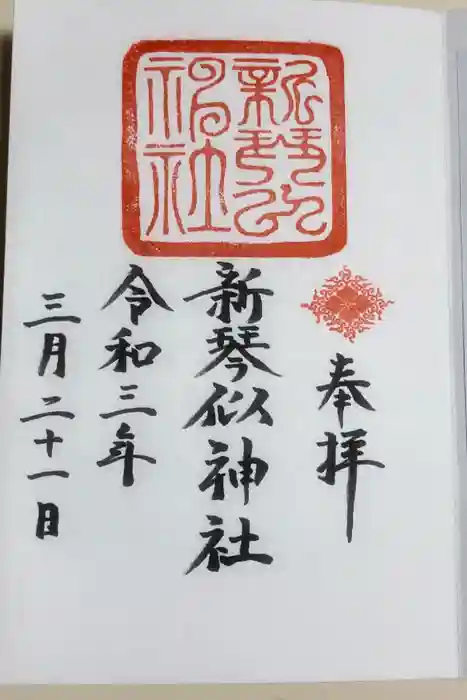 奉拝
新琴似神社
新琴似神社
令和三年
三月二十一日